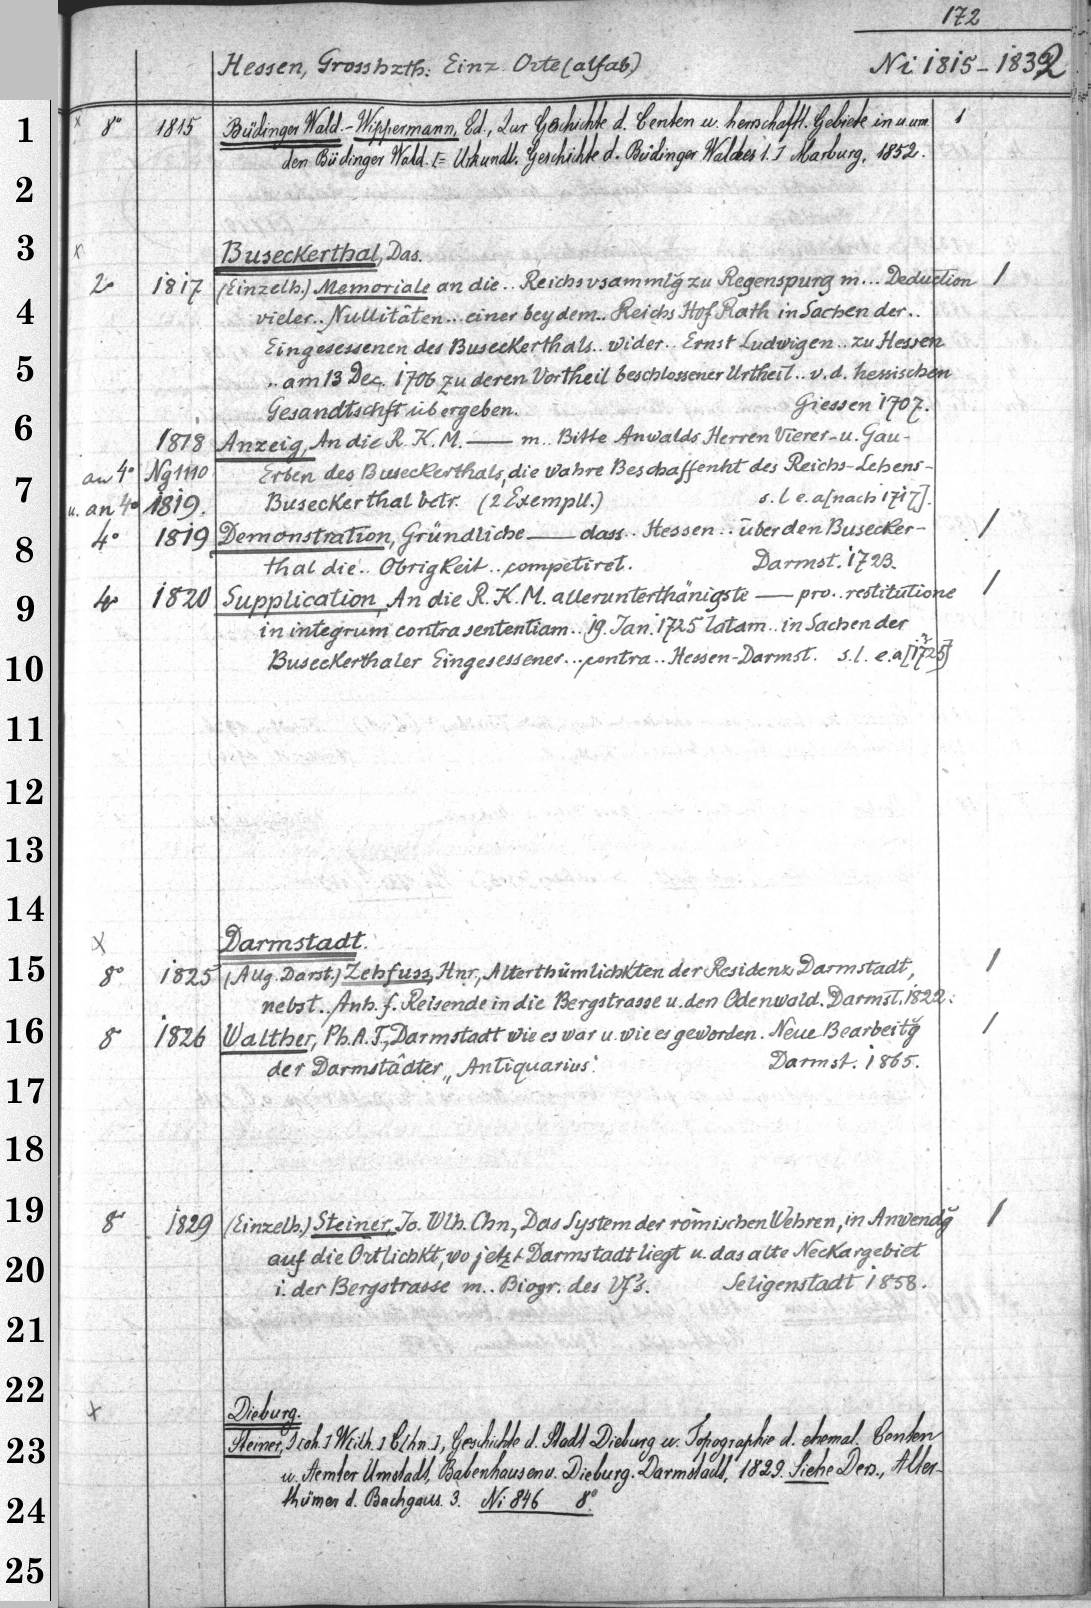 172
Hessen, Grosshzth: Einz. Orte (alfab) Ni 1815-1832
1 x 8° 1815 Büdinger Wald.-Wippermann, Ed., Zur Geschichte d. Centen u. herrschaftl. Gebiete in u. um 1
den Büdinger Wald. [= Urkundl. Geschichte d. Büdinger Waldes 1.] Marburg, 1852.
2
3 x Buseckerthal, Das.
2° 1817 (Einzelh.) Memoriale an die.. Reichsvsammlg zu Regenspurg m... Deduction 1
4 vieler.. Nullitäten... einer bey dem.. Reichs Hof Rath in Sachen der..
Eingesessenen des Buseckerthals.. wider.. Ernst Ludwigen.. zu Hessen
5 .. am 13 Dec. 1706 zu deren Vortheil beschlossener Urtheil.. v. d. hessischen
Gesandtschft übergeben. Giessen 1707.
6 1818 Anzeig, An die R. K. M. — m.. Bitte Anwalds Herren Vierer- u. Gau-
an 4° Ng 1110 Erben des Buseckerthals, die wahre Beschaffenht des Reichs-Lehens-
7 u. an 4° 1819. Buseckerthal betr. (2 Exempll.) s. l. e. a [nach 1717].
4° 1819 Demonstration, Gründliche — dass.. Hessen.. über den Busecker- 1
8 thal die.. Obrigkeit.. competiret. Darmst. 1723.
9 4° 1820 Supplication, An die R. K. M. allerunterthänigste — pro.. restitutione 1
in integrum contra sententiam.. 19. Jan. 1725 latam.. in Sachen der
10 Buseckerthaler Eingesessener... contra.. Hessen-Darmst. s. l. e. a [1725?]
11
12
13
14
x Darmstadt.
15 8° 1825 (Aug. Darst.) Zehfuss, Hnr., Alterthümlichkten der Residenz Darmstadt, 1
nebst.. Anh. f. Reisende in die Bergstrasse u. den Odenwald. Darmst. 1822.
16 8° 1826 Walther, Ph. A. F., Darmstadt wie es war u. wie es geworden. Neue Bearbeitg 1
der Darmstädter „Antiquarius". Darmst. 1865.
17
18
19 8° 1829 (Einzelh.) Steiner, Jo. Wlh. Chn., Das System der römischen Wehren, in Anwendg 1
auf die Örtlichkt, wo jetzt Darmstadt liegt u. das alte Neckargebiet
20 i. der Bergstrasse m.. Biogr. des Vf's. Seligenstadt 1858.
21
22
x Dieburg.
23 Steiner, J[oh.] W[ilh.] C[hn.], Geschichte d. Stadt Dieburg u. Topographie d. ehemal. Centen
u. Aemter Umstadt, Babenhausen u. Dieburg. Darmstadt, 1829. Siehe Ders., Alter-
24 thümer d. Bachgaus. 3. Ni 846 8°
25